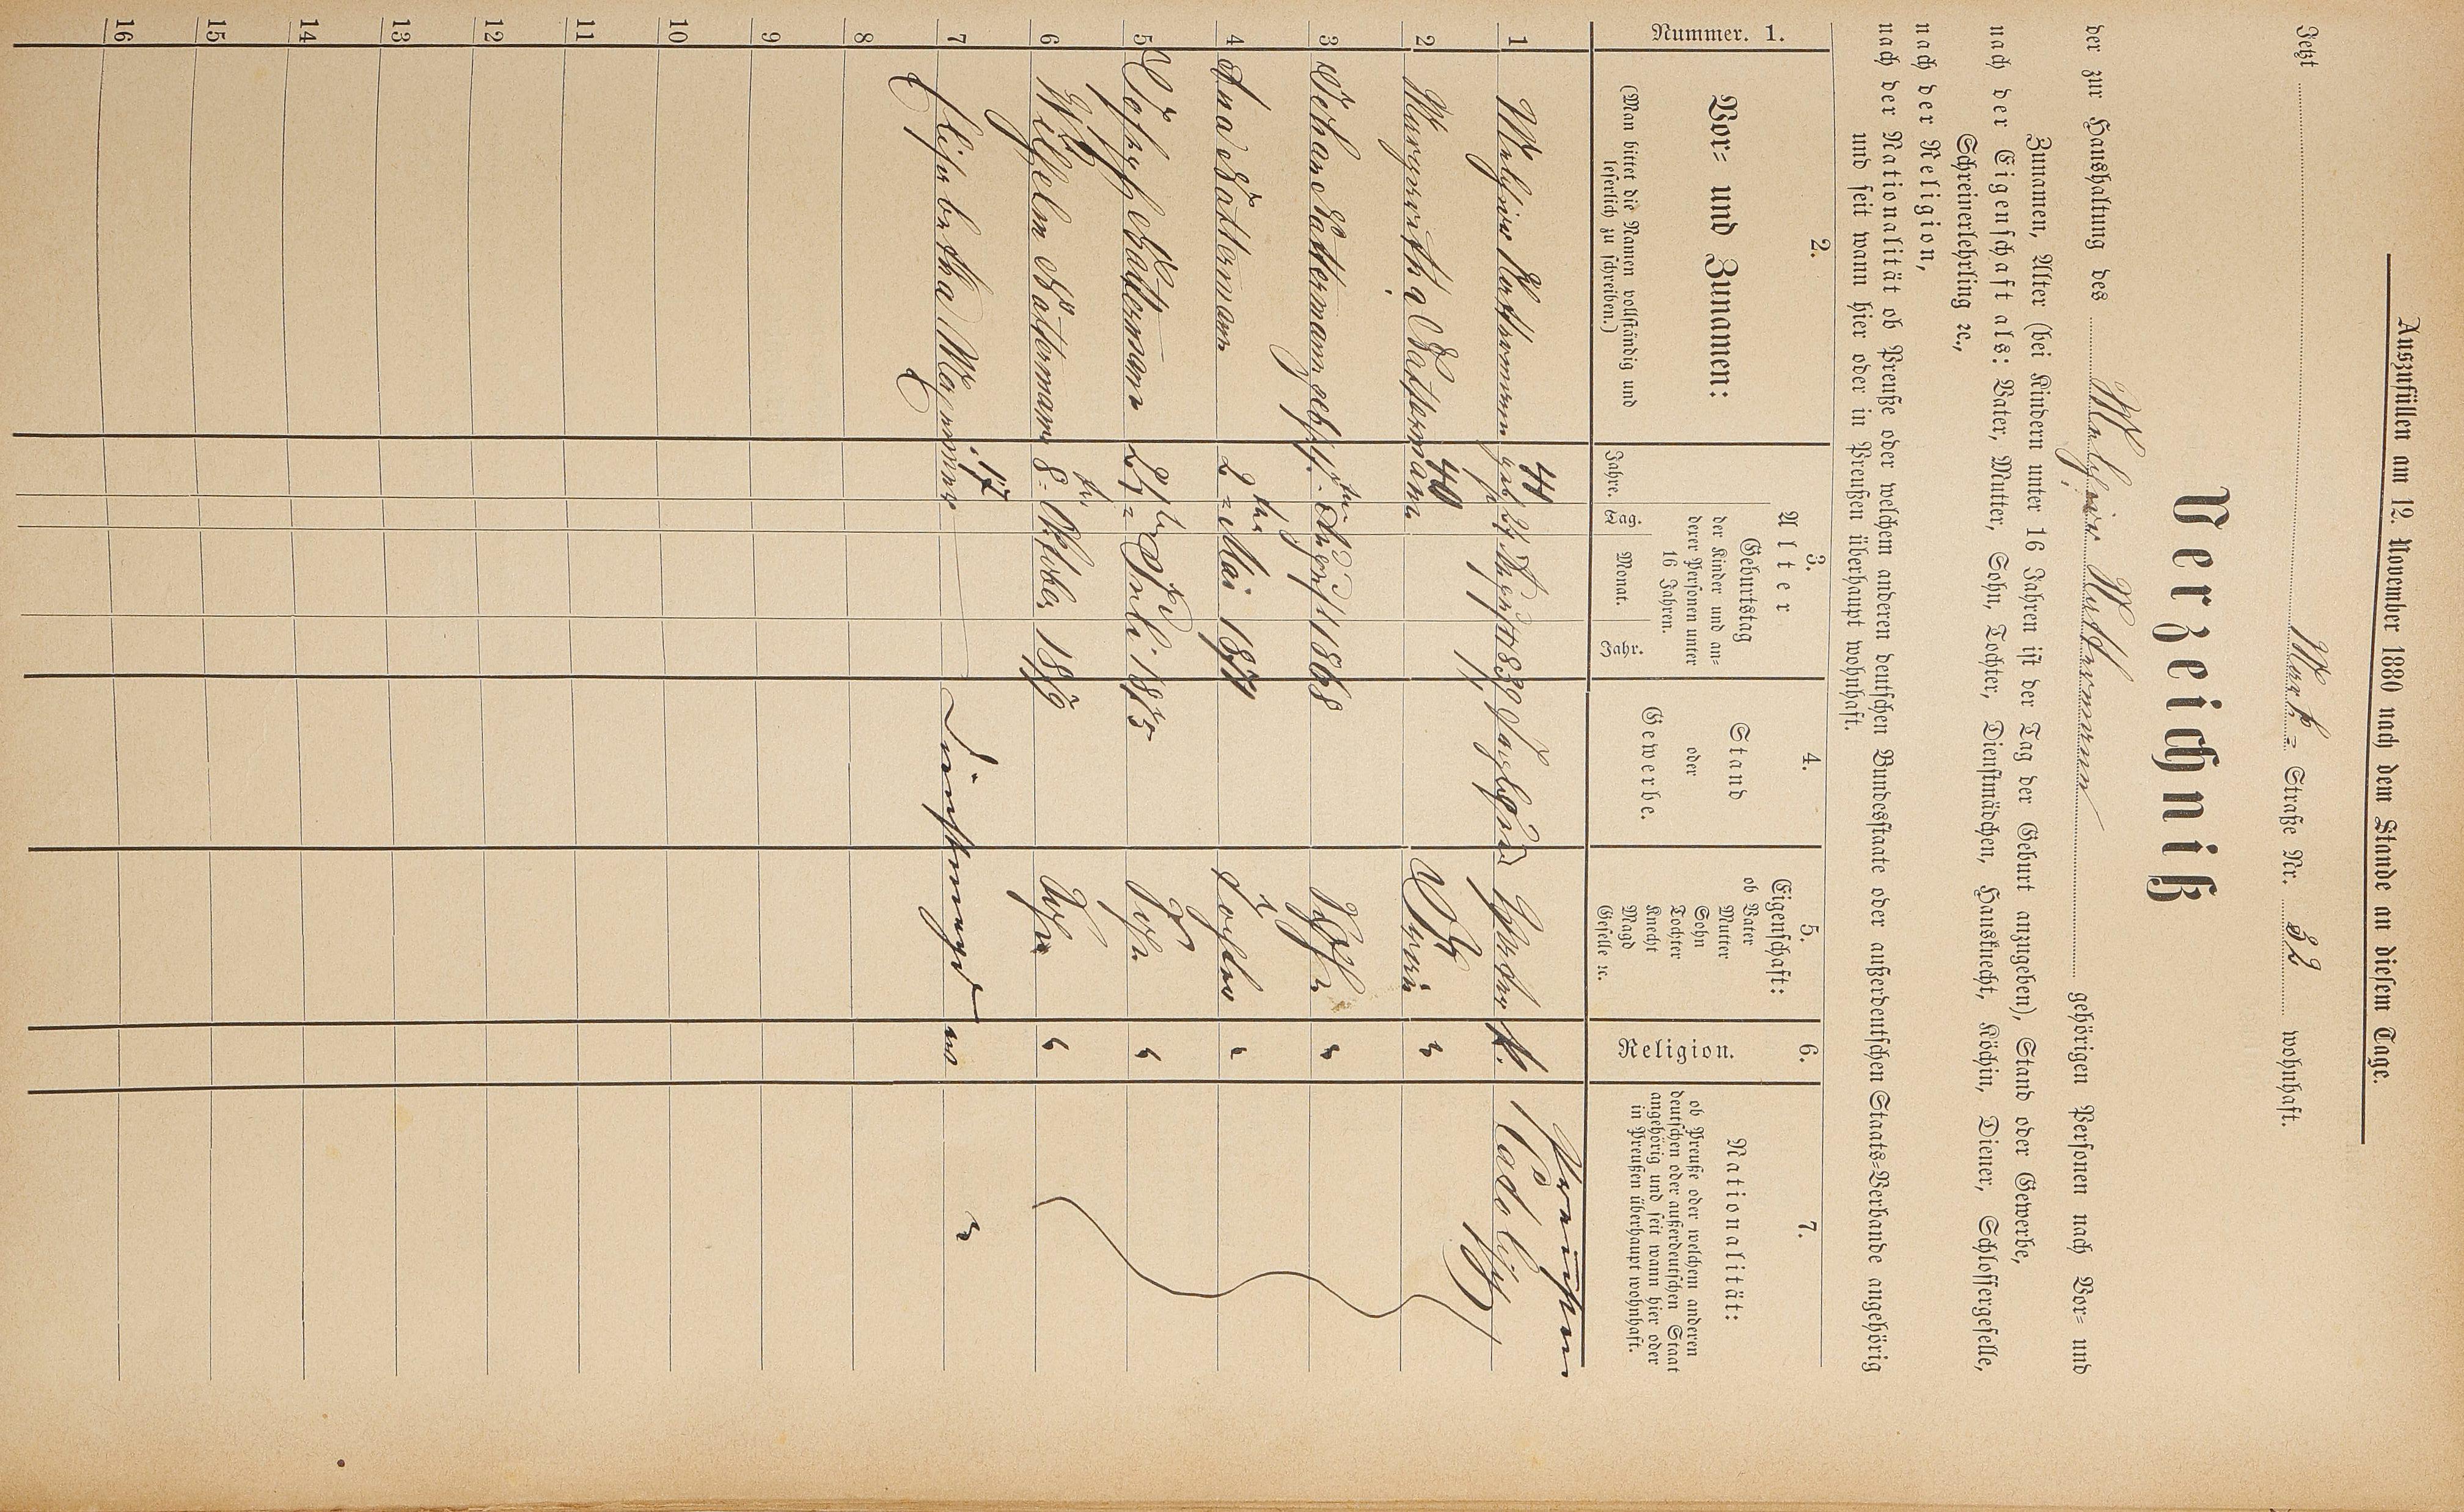 Auszufüllen am 12. November 1880 nach dem Stande an diesem Tage.
Jetzt Mark= Straße Nr. 32 wohnhaft.
Verzeichniß
der zur Haushaltung des gehörigen Personen nach Vor= und
Zunamen, Alter (bei Kindern unter 16 Jahren ist der Tag der Geburt anzugeben), Stand oder Gewerbe,
nach der Eigenschaft als: Vater, Mutter, Sohn, Tochter, Dienstmädchen, Hausknecht, Köchin, Diener, Schlossergeselle,
Schreinerlehrling ꝛc.,
nach der Religion,
nach der Nationalität ob Preuße oder welchem anderen deutschen Bundesstaate oder außerdeutschen Staats=Verbande angehörig
und seit wann hier oder in Preußen überhaupt wohnhaft.
Nummer. 1.
2.
Vor= und Zunamen:
(Man bittet die Namen vollständig und
leserlich zu schreiben.)
3.
Alter
Geburtstag
der Kinder und an=
derer Personen unter
16 Jahren.
Jahre.
Tag.
Monat.
Jahr.
4.
Stand
oder
Gewerbe.
5.
Eigenschaft:
ob Vater
Mutter
Sohn
Tochter
Knecht
Magd
Geselle ꝛc.
6.
Religion.
7.
Nationalität:
ob Preuße oder welchem anderen
deutschen oder außerdeutschen Staat
angehörig und seit wann hier oder
in Preußen überhaupt wohnhaft.
1 44 1839 K. Preußen
2 Margaretha Nattermann 40 "
3 Johan Nattermann August 1868 Sohn "
4 Ana Nattermann 2= Mai 1871 Tochter "
5 Joseph Nattermann Juli 1875 Sohn "
6 Wilhelm Nattermann 8= Oktober 1879 Sohn "
7 Elisabetha 17 Dienstmagd "
8
9
10
11
12
13
14
15
16